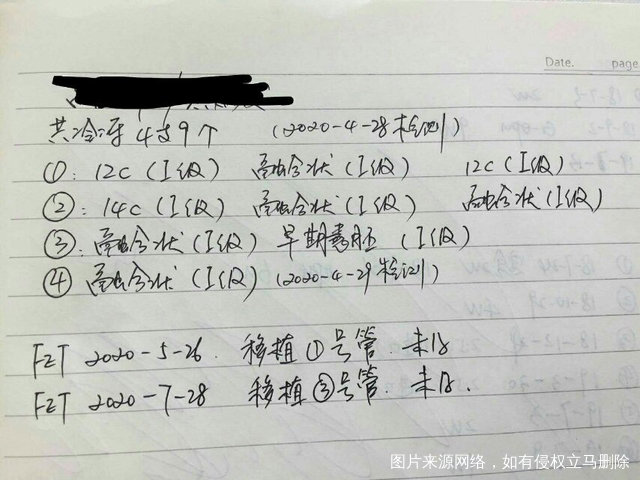 Date. page
共冷冻4支9个 (2020-4-28检测)
①: 12C (I级) 高融合状 (I级) 12C (I级)
②: 14C (I级) 高融合状 (I级) 高融合状 (I级)
③: 高融合状 (I级) 早期囊胚 (I级)
④ 高融合状 (I级) (2020-4-29检测)
FET 2020-5-26. 移植①号管. 未孕
FET 2020-7-28 移植③号管. 未孕.
图片来源网络，如有侵权立马删除